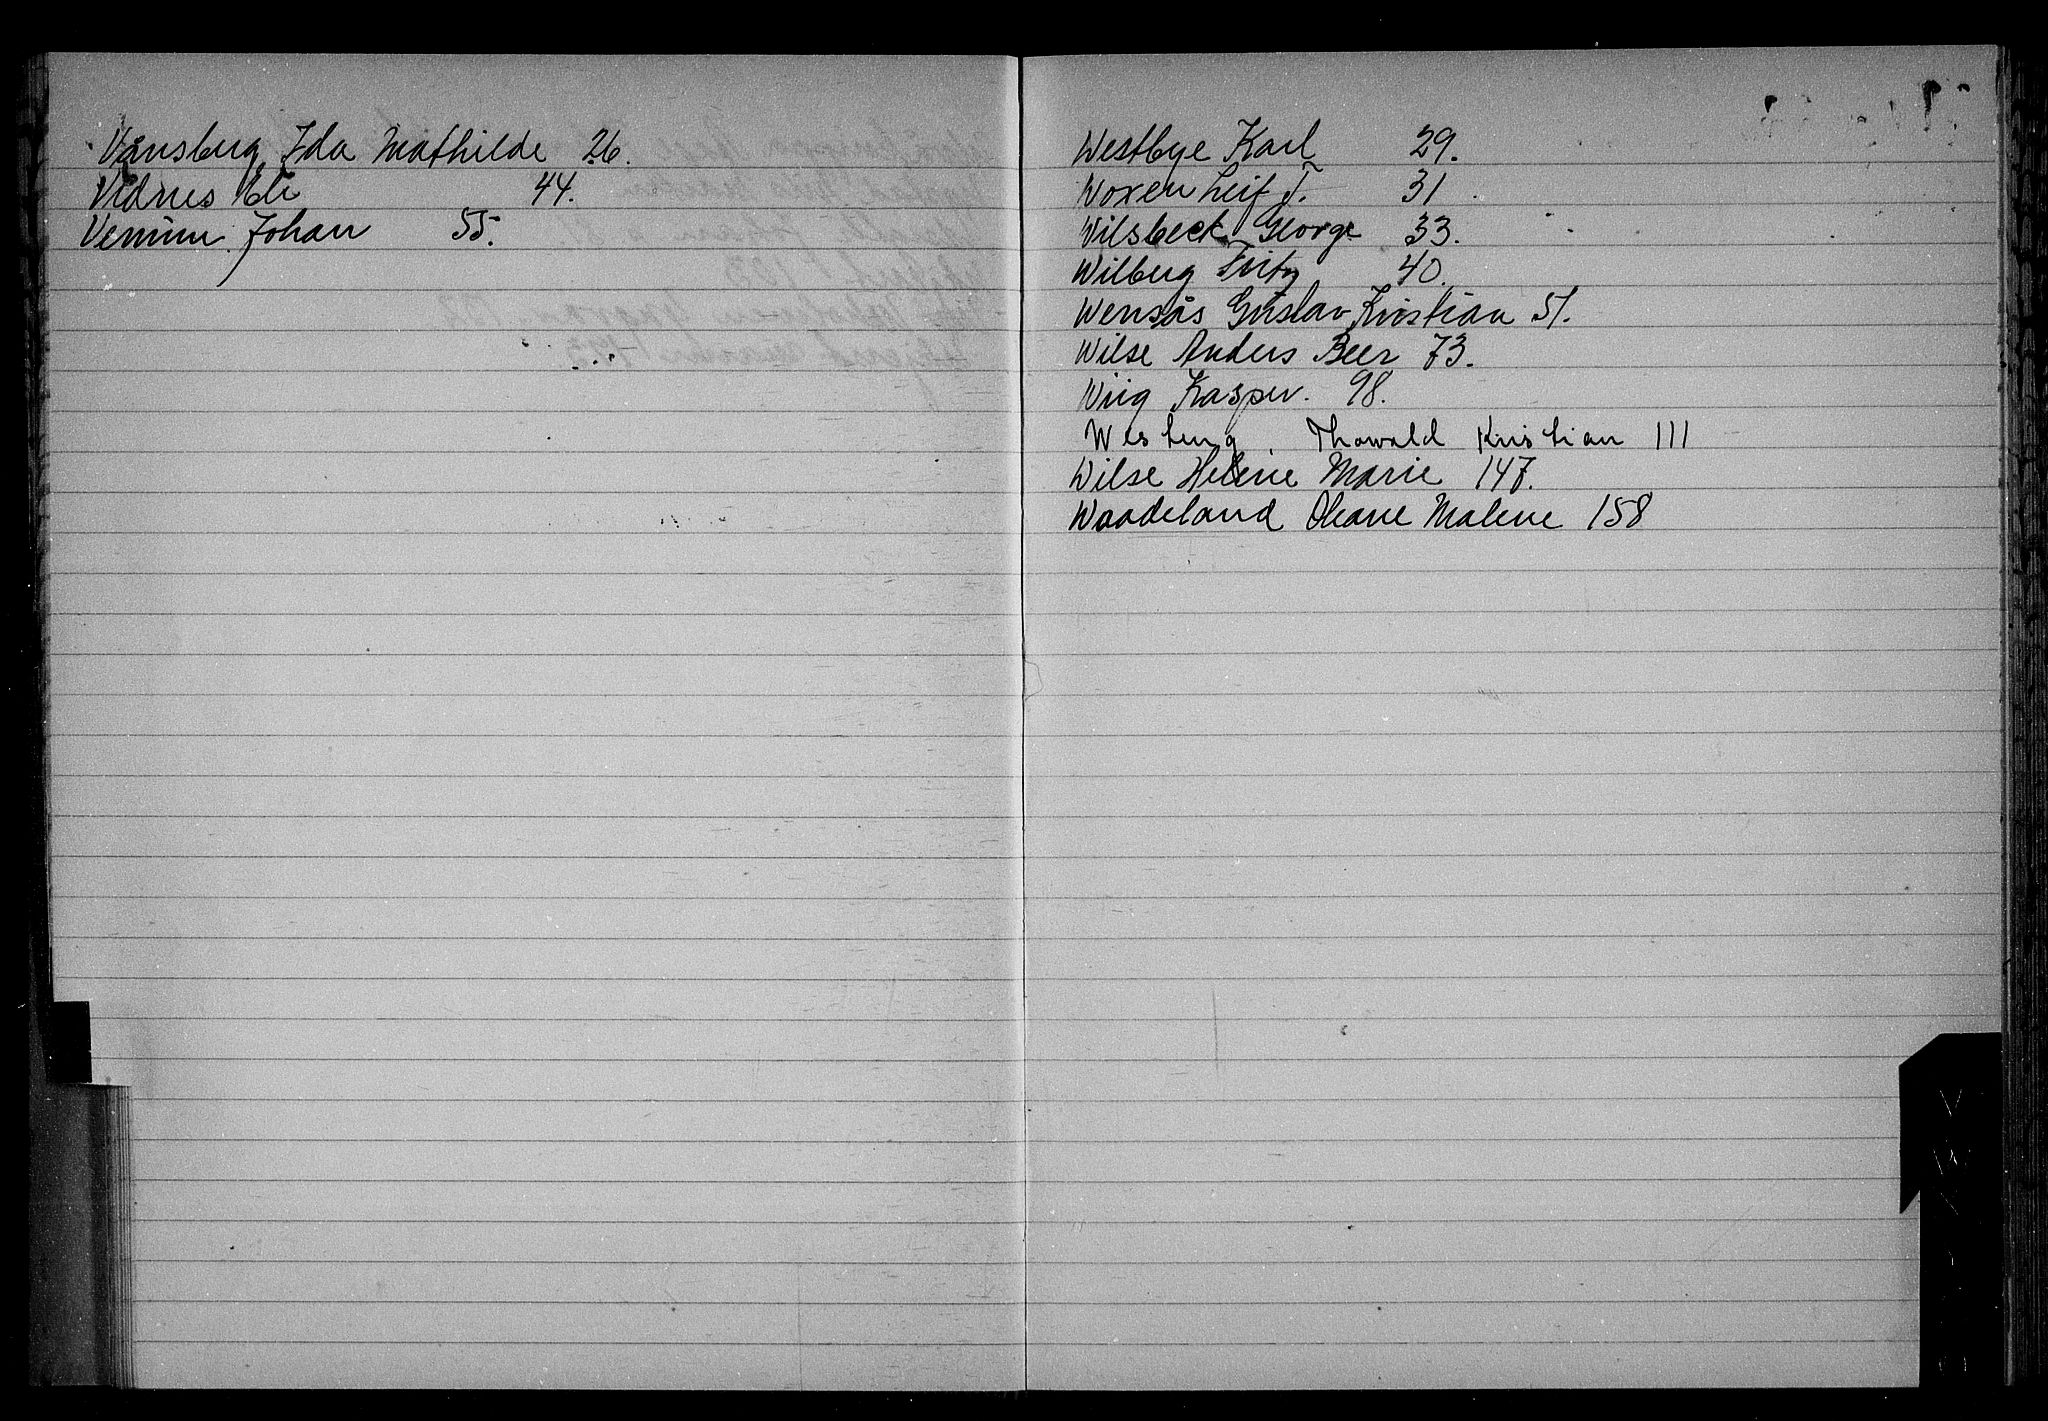 Vånsberg, Ida Mathilde 26.
Vidnes Eli 44.
Venum Johan 55.
Westbye Karl 29.
Woxen Leif T. 31
Wilsbeck George 33.
Wilberg Fritz 40.
Wensås Gustav Kristian 51.
Wilse Anders Beer 73.
Wiig Kasper. 98.
Westeng, Thorvald Kristian 111
Wilse Helene Marie 147.
Waadeland Oleane Malene 158